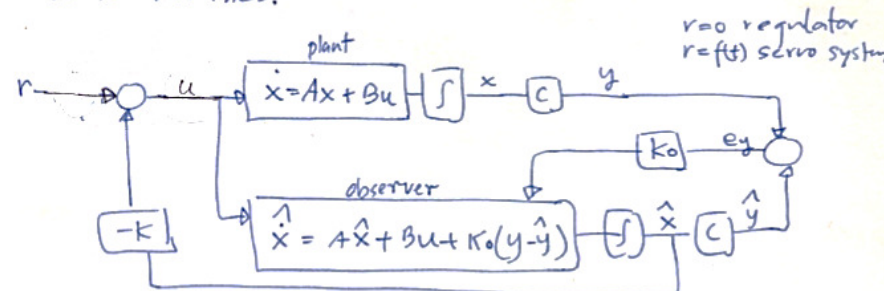 r=0 regulator
r=f(t) servo system
plant
r
u
ẋ=Ax+Bu
∫
x
C
y
K₀
ey
observer
-K
x̂̇ = Ax̂+Bu+K₀(y-ŷ)
∫
x̂
C
ŷ